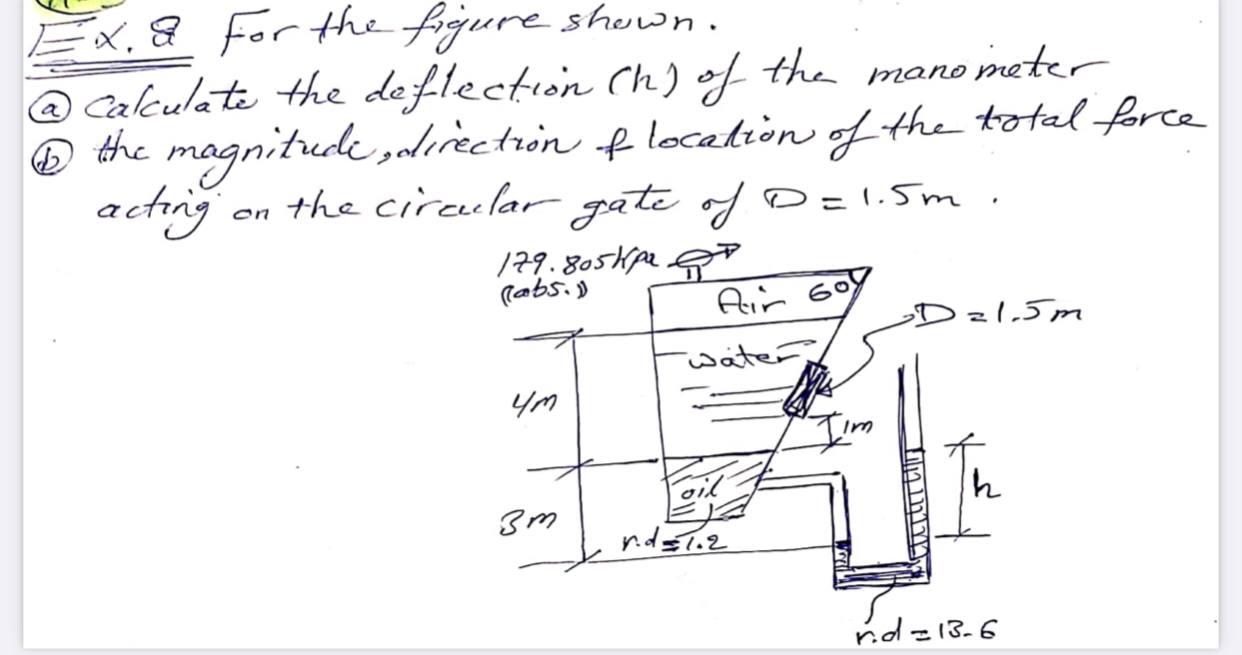 Ex. 8 For the figure shown.
ⓐ Calculate the deflection (h) of the manometer
ⓑ the magnitude, direction & location of the total force
acting on the circular gate of D = 1.5m .
179.805 Kpa
(abs.)
Air 60
D = 1.5m
water
4m
1m
h
oil
3m
r.d = 1.2
r.d = 13.6